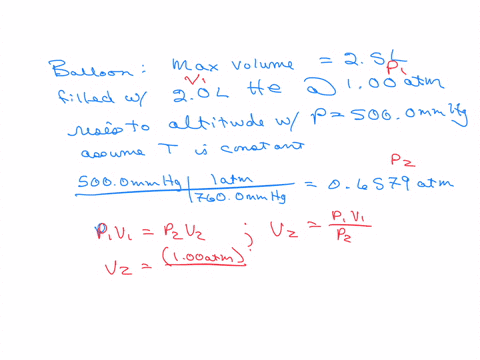 Balloon: Max volume = 2.5L
V₁ P₁
filled w/ 2.0L He @ 1.00 atm
to altitude w/ P=500.0mmHg
assume T is constant
P₂
500.0mmHg | 1atm / 760.0mmHg = 0.6579 atm
P₁V₁ = P₂V₂ ; V₂ = P₁V₁ / P₂
V₂ = (1.00atm)